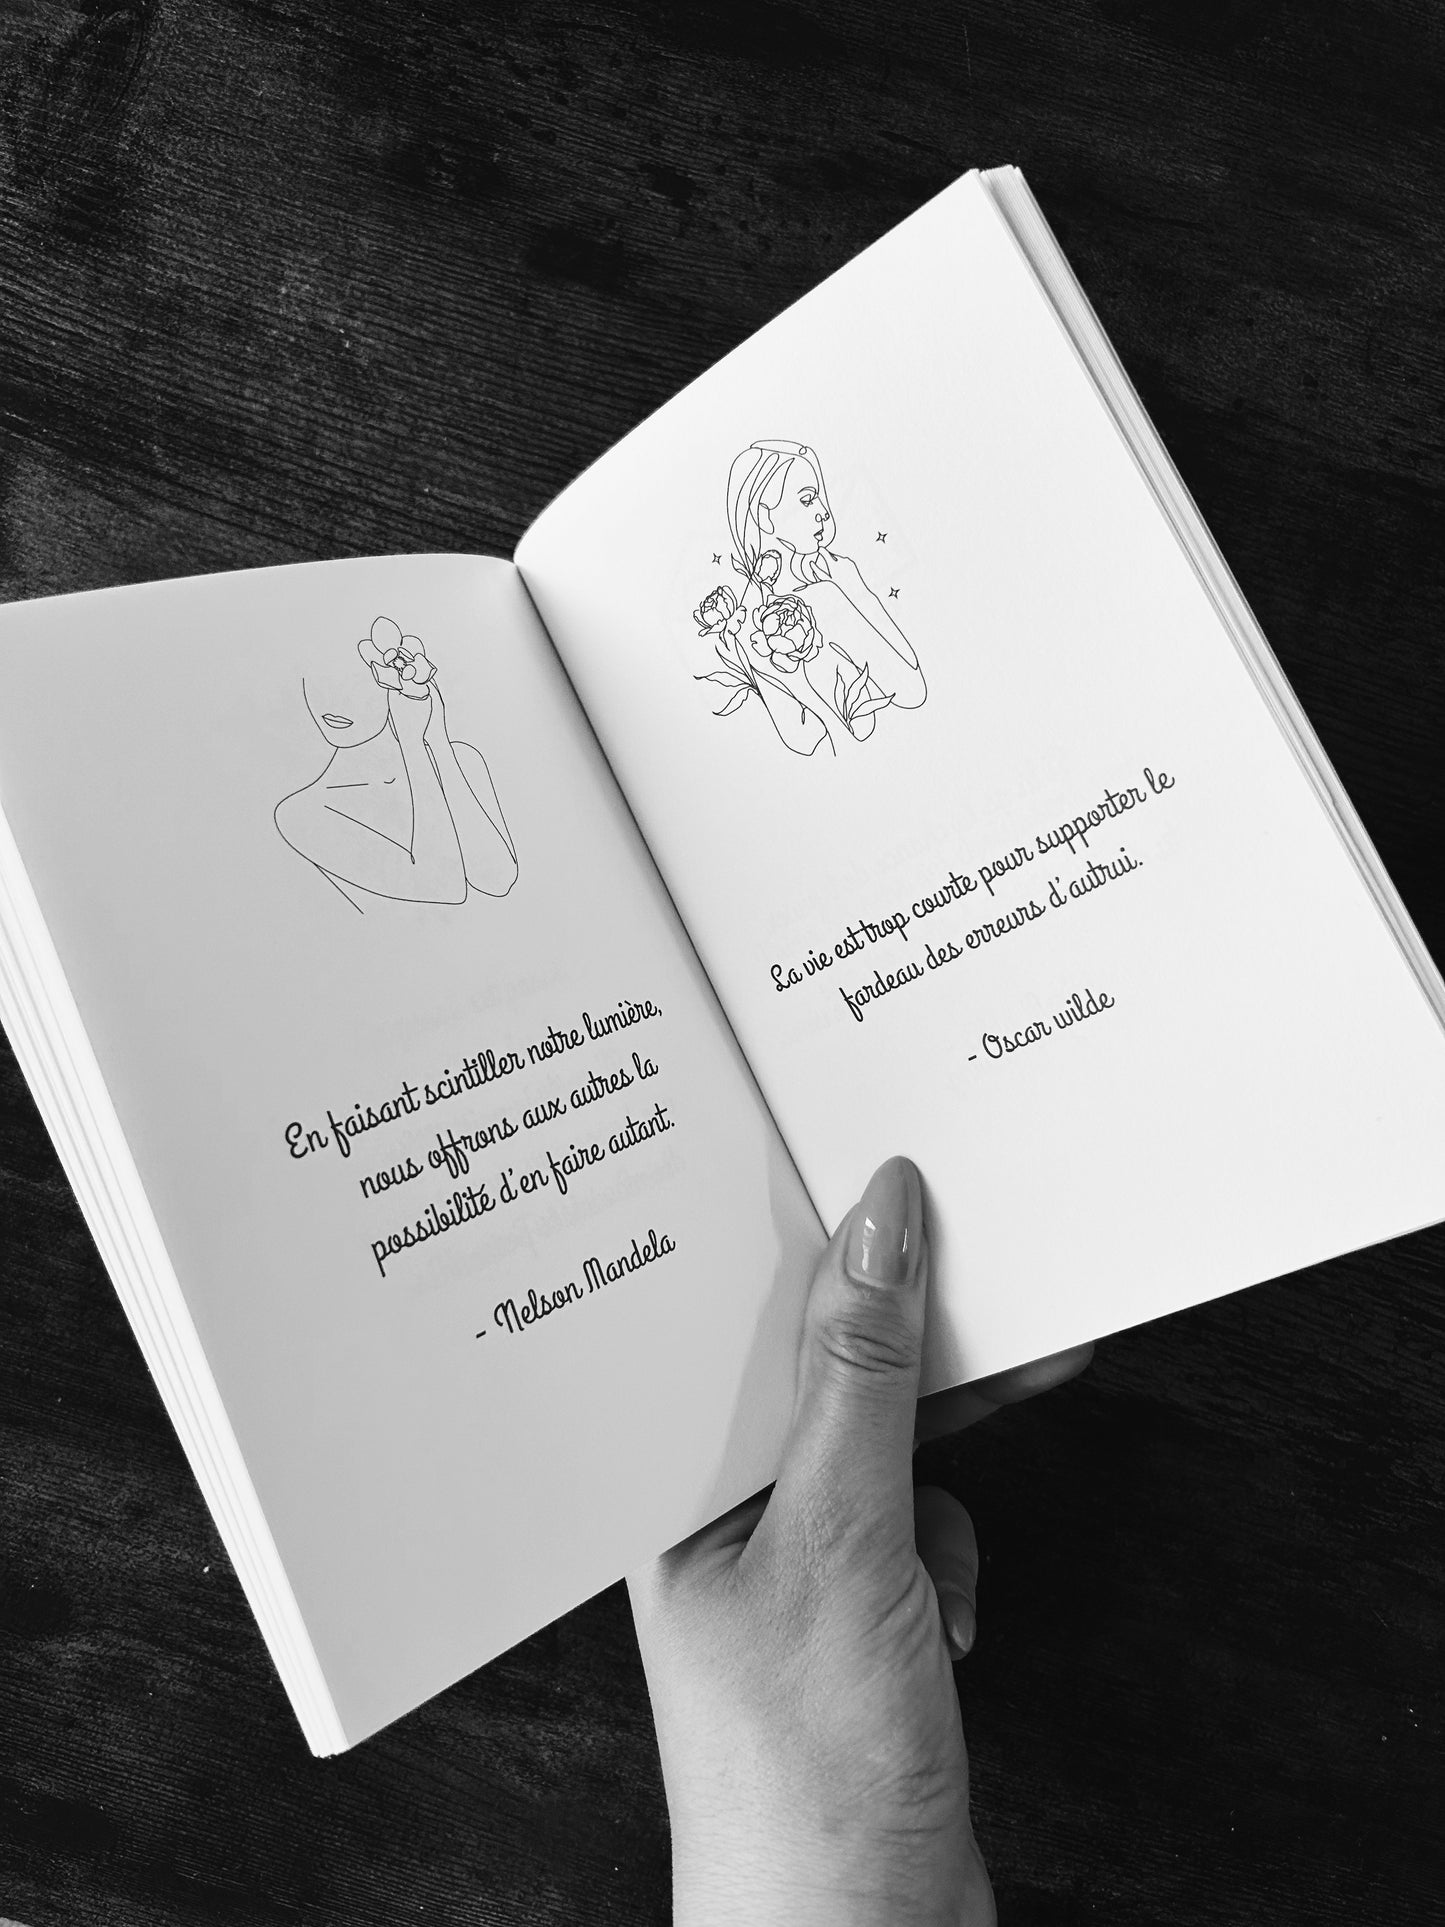 En faisant scintiller notre lumière,
nous offrons aux autres la
possibilité d'en faire autant.
- Nelson Mandela
La vie est trop courte pour supporter le
fardeau des erreurs d'autrui.
- Oscar wilde